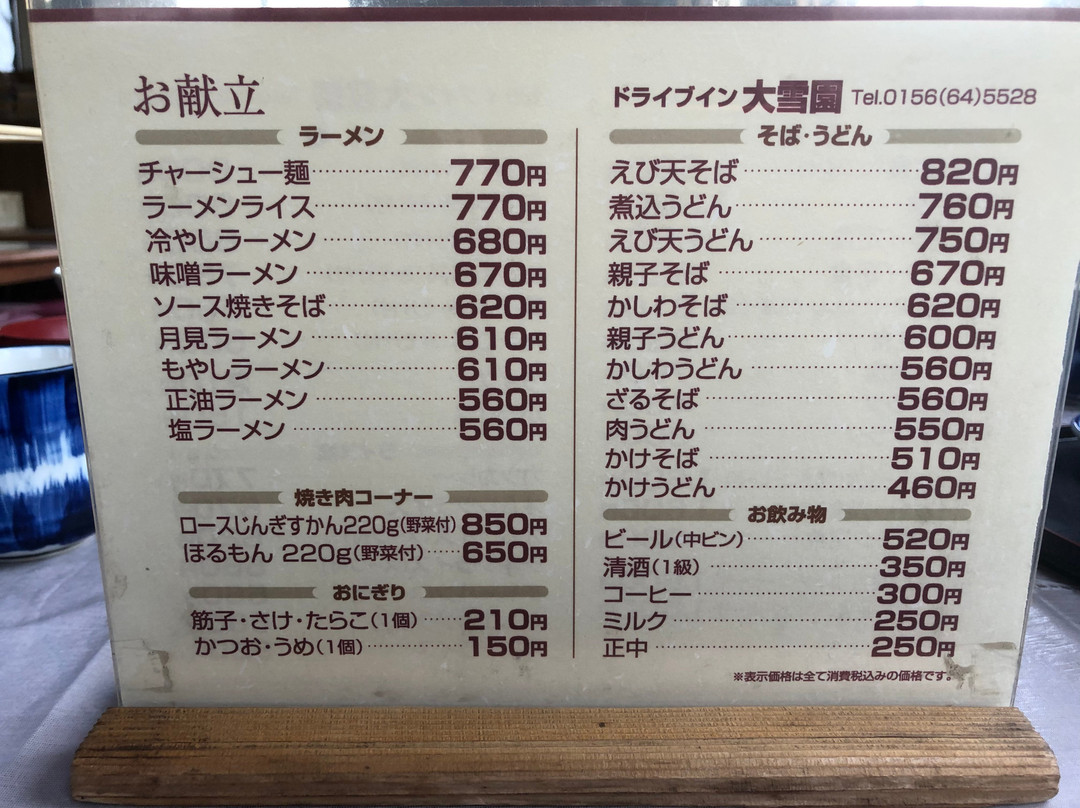 お献立
ラーメン
チャーシュー麺 770円
ラーメンライス 770円
冷やしラーメン 680円
味噌ラーメン 670円
ソース焼きそば 620円
月見ラーメン 610円
もやしラーメン 610円
正油ラーメン 560円
塩ラーメン 560円
焼き肉コーナー
ロースじんぎすかん220g(野菜付) 850円
ほるもん 220g(野菜付) 650円
おにぎり
筋子・さけ・たらこ(1個) 210円
かつお・うめ(1個) 150円
ドライブイン 大雪園 Tel.0156(64)5528
そば・うどん
えび天そば 820円
煮込うどん 760円
えび天うどん 750円
親子そば 670円
かしわそば 620円
親子うどん 600円
かしわうどん 560円
ざるそば 560円
肉うどん 550円
かけそば 510円
かけうどん 460円
お飲み物
ビール(中ビン) 520円
清酒(1級) 350円
コーヒー 300円
ミルク 250円
正中 250円
※表示価格は全て消費税込みの価格です。